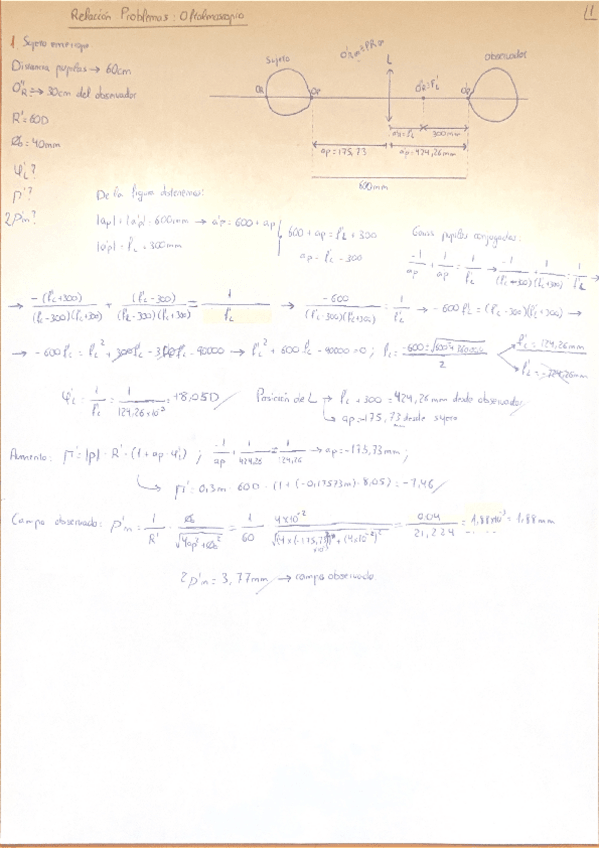 Relación Problemas: Oftalmoscopio
1
1. Sujeto emetrope
Distancia pupilas → 60cm
O''R → 30cm del observador
R' = 60D
Øo = 40mm
φ'L?
Γ'?
2ρ'm?
Sujeto
Observador
L
OR
Op
O'p
300mm
ap = 175,73
a'p = 424,26mm
600mm
De la figura obtenemos:
|ap| + |a'p| = 600mm → a'p = 600 + ap
|a'p| - f'L = 300mm
600 + ap = f'L + 300
ap = f'L - 300
Gauss pupilas conjugadas:
-1/ap + 1/a'p = 1/f'L → -1/(f'L-300) + 1/(f'L+300) = 1/f'L →
→ -(f'L+300)/(f'L-300)(f'L+300) + (f'L-300)/(f'L-300)(f'L+300) = 1/f'L → -600/(f'L-300)(f'L+300) = 1/f'L → -600 f'L = (f'L-300)(f'L+300) →
→ -600 f'L = f'L² + 300f'L - 300f'L - 90000 → f'L² + 600 f'L - 90000 = 0; f'L = 124,26mm
φ'L = 1/f'L = 1/124,26×10⁻³ = +8,05D
Posición de L → f'L + 300 = 424,26 mm desde observador
→ ap = -175,73 desde sujeto
Aumento: Γ' = |p|·R'·(1 + ap·φ'L); -1/ap + 1/424,26 = 1/124,26 → ap = -175,73mm;
Γ' = 0,3m · 60D · (1 + (-0,17573m)·8,05) = -7,46
Campo observado: ρ'm = 1/R' · Øo/√(4ap² + Øo²) = 1/60 · 4×10⁻²/√(4×(-175,73×10⁻³)² + (4×10⁻²)²) = 0,04/21,224 = 1,88×10⁻³ = 1,88mm
2ρ'm = 3,77mm → campo observado